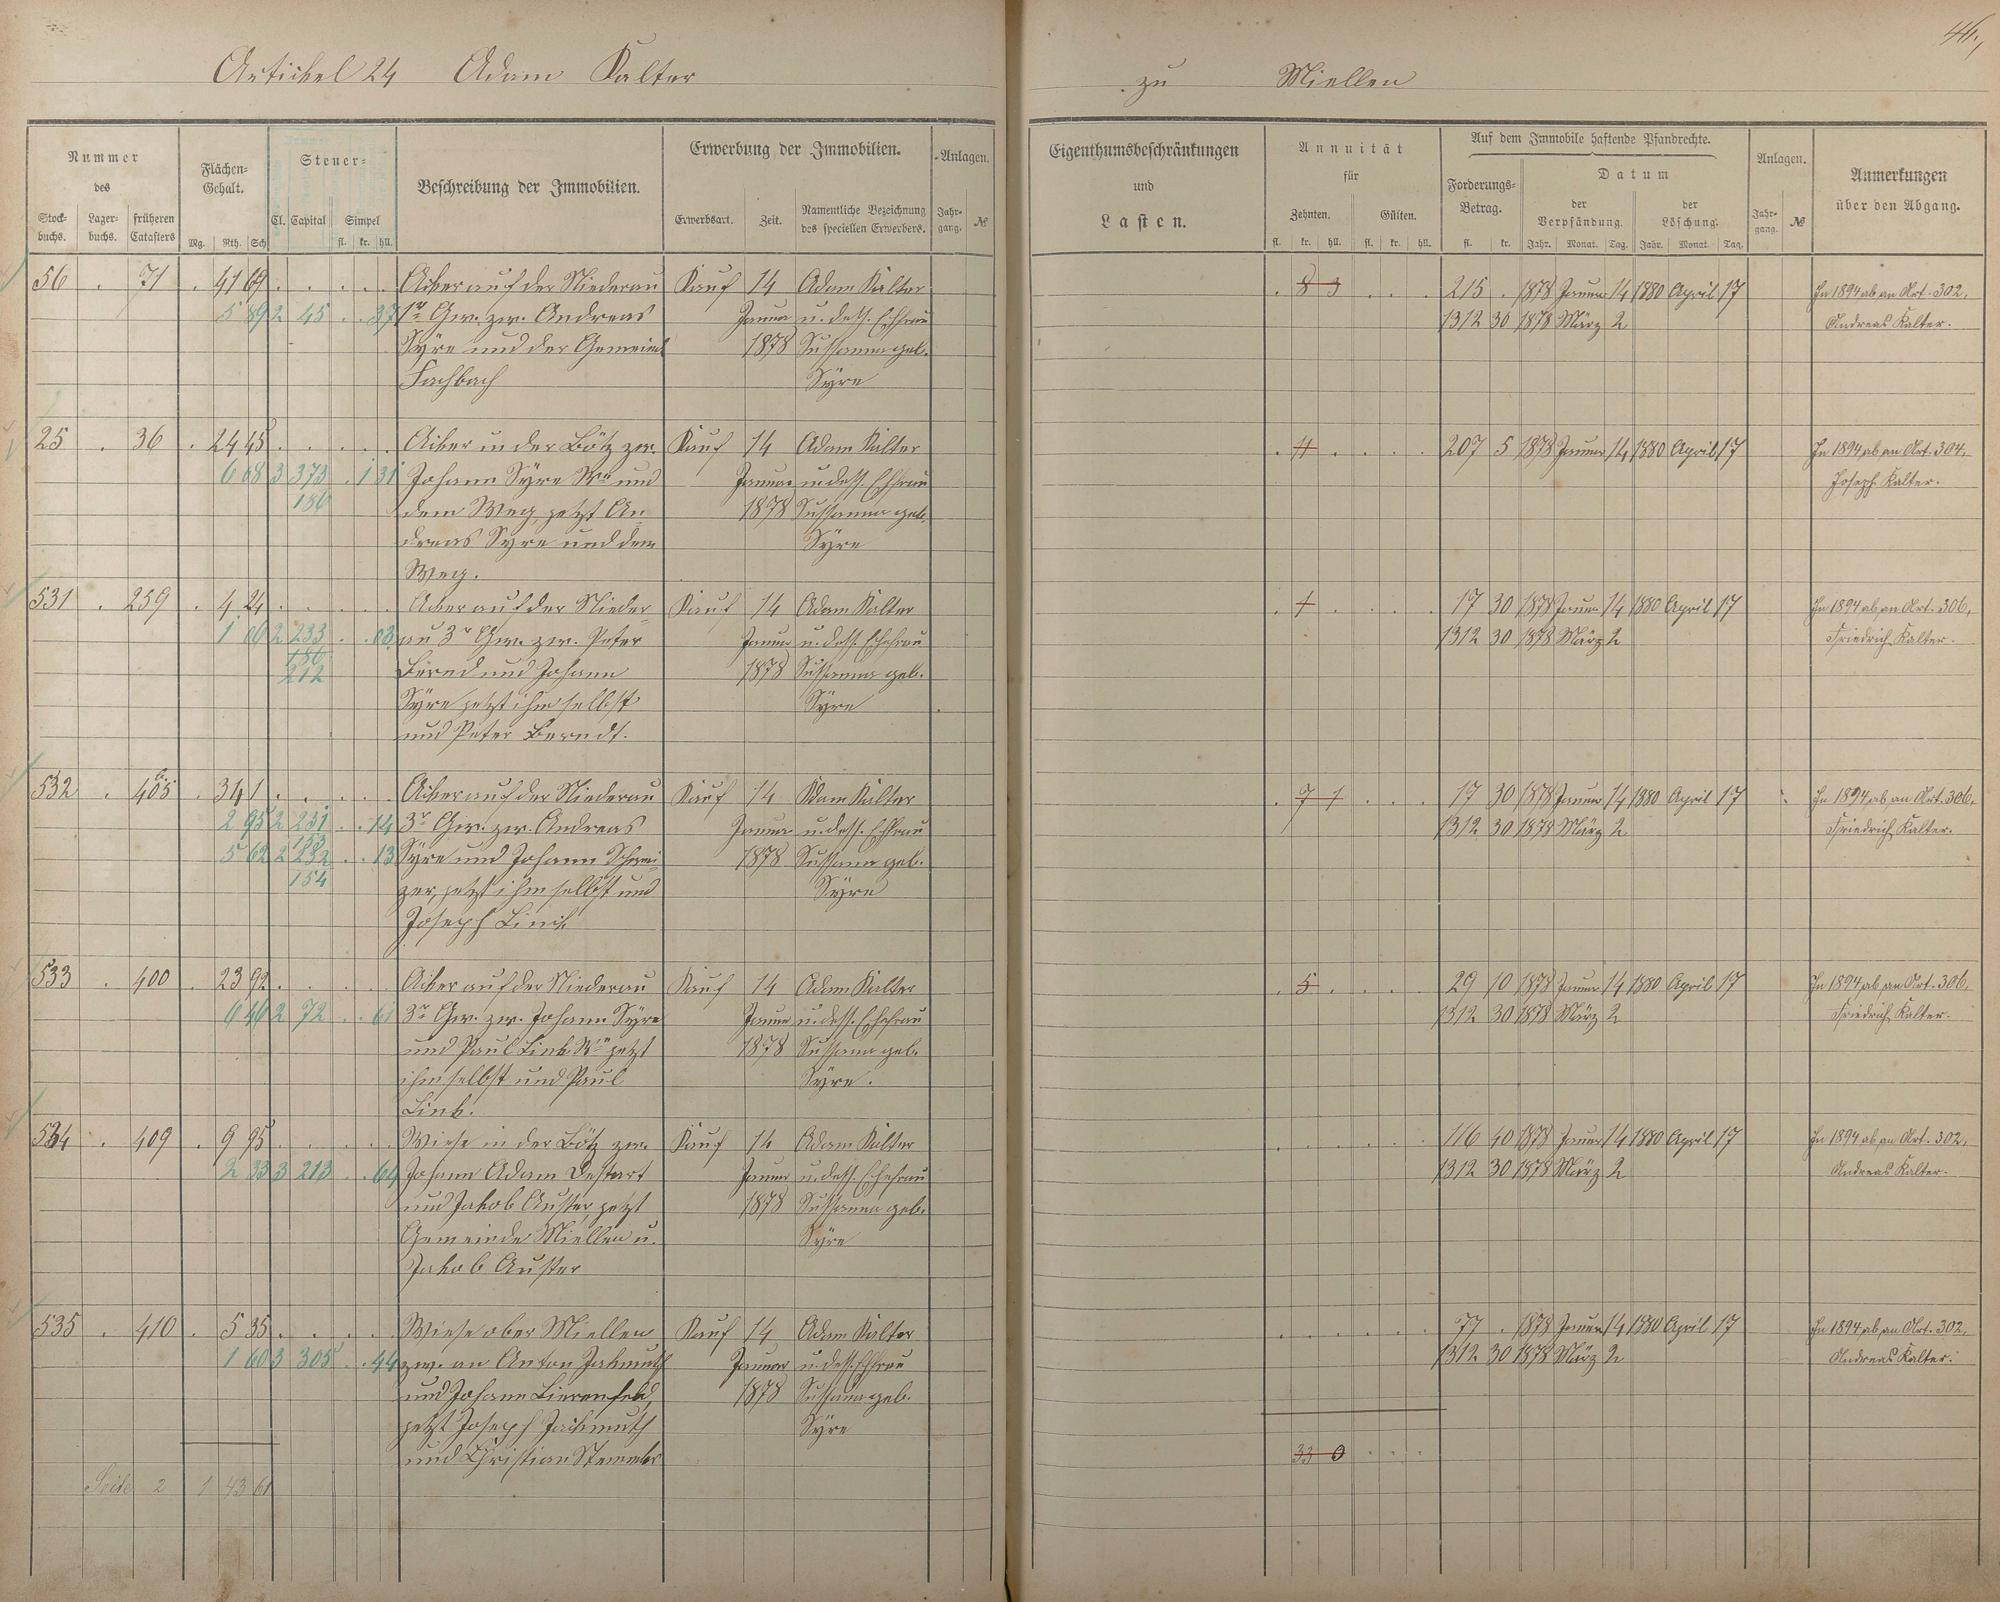 46.
Artickel 24 Adam Kalter
zu Miellen
Nummer
des
Stock-
buchs.
Lager-
buchs.
früheren
Catasters
Flächen-
Gehalt.
Mg. Rth. Sch
Steuer-
Cl. Capital Simpel
fl. kr. hll.
Beschreibung der Immobilien.
Erwerbung der Immobilien.
Erwerbsart. Zeit.
Namentliche Bezeichnung
des speciellen Erwerbers.
Anlagen.
Jahr-
gang. №
Eigenthumsbeschränkungen
und
Lasten.
Annuität
für
Zehnten. Gülten.
fl. kr. hll. fl. kr. hll.
Auf dem Immobile haftende Pfandrechte.
Forderungs-
Betrag.
fl. kr.
Datum
der
Verpfändung.
Jahr. Monat. Tag.
der
Löschung.
Jahr. Monat. Tag.
Anlagen.
Jahr-
gang. №
Anmerkungen
über den Abgang.
56 . 71 . 41 69 . . . . . Acker auf der Niederau Kauf 14 Adam Kalter
5 89 2 45 . . 37 1r Gew. zw. Andreas Januar u. dess. Ehfrau
Syre und der Gemeind 1878 Sussanna geb.
Fachbach Syre
. 8 3 . . . 215 . 1878 Januar 14 1880 April 17 In 1894 ab an Art. 302,
1312 30 1878 März 2 Andreas Kalter.
25 . 36 . 24 45 . . . . . Acker in der Bötz zw. Kauf 14 Adam Kalter
6 08 3 373 . 1 31 Johann Syre und Januar u. dess. Ehfrau
186 dem Weg, jetzt An- 1878 Sussanna geb.
dreas Syre und dem Syre
Weg.
. 4 . . . . 207 5 1878 Januar 14 1880 April 17 In 1894 ab an Art. 304,
Joseph Kalter.
531 . 259 . 4 24 . . . . . Acker auf der Nieder- Kauf 14 Adam Kalter
1 06 2 233 . . 03 au 3r Gew. zw. Peter Januar u. dess. Ehefrau
186
212 Bernd und Johann 1878 Sussanna geb.
Syre jetzt ihm selbst Syre
und Peter Berndt.
. 1 . . . . 17 30 1878 Januar 14 1880 April 17 In 1894 ab an Art. 306,
1312 30 1878 März 2 Friedrich Kalter.
532 . 405 b. . 34 1 . . . . . Acker auf der Niederau Kauf 14 Adam Kalter
2 95 2 231 . . 14 3r Gew. zw. Andreas Januar u. dess. Ehfrau
153
5 62 2 232 . . 13 Syre und Johann Schwei- 1878 Sussanna geb.
154 zer, jetzt ihm selbst und Syre
Joseph Link
. 7 1 . . . 17 30 1878 Januar 14 1880 April 17 In 1894 ab an Art. 306,
1312 30 1878 März 2 Friedrich Kalter.
533 . 400 . 23 92 . . . . . Acker auf der Niederau Kauf 14 Adam Kalter
6 46 2 72 . . 61 3r Gew. zw. Johann Syre Januar u. dess. Ehefrau
und Paul Link jetzt 1878 Sussanna geb.
ihm selbst und Paul Syre.
Link.
. 5 . . . . 29 10 1878 Januar 14 1880 April 17 In 1894 ab an Art. 306,
1312 30 1878 März 2 Friedrich Kalter.
534 . 409 . 9 95 . . . . . Wiese in der Bötz zw. Kauf 14 Adam Kalter
2 33 3 213 . . 64 Johann Adam Destart Januar u. dess. Ehefrau
und Jakob Auster, jetzt 1878 Sussanna geb.
Gemeinde Miellen u. Syre
Jakob Auster
. . . . . . 116 40 1878 Januar 14 1880 April 17 In 1894 ab an Art. 302,
1312 30 1878 März 2 Andreas Kalter.
535 . 410 . 5 35 . . . . . Wiese ober Miellen Kauf 14 Adam Kalter
1 60 3 305 . . 44 zw. an Anton Jachmuth Januar u. dess. Ehfrau
und Johann Lierenfeld, 1878 Sussanna geb.
jetzt Joseph Jachmuth Syre
und Christian Stemmler
. . . . . . 77 . 1878 Januar 14 1880 April 17 In 1894 ab an Art. 302,
1312 30 1878 März 2 Andreas Kalter.
33 0 . . .
Seite 2 1 43 61